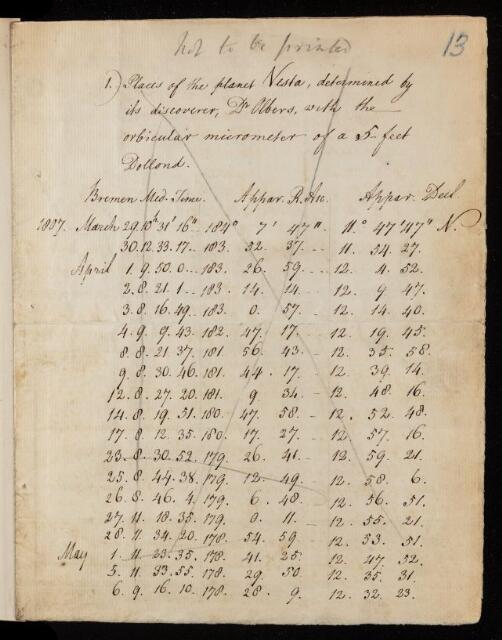 not to be printed
13
1.) Places of the planet Vesta, determined by
its discoverer, Dr Olbers, with the
orbicular micrometer of a 5 feet
Dollond.
Bremen Med. Time. Appar. R. Asc. Appar. Decl
1807. March 29. 10h 31' 16" 184° 7' 47" 11° 47' 47" N.
30. 12. 33. 17. 183. 52. 37. 11. 54. 27.
April 1. 9. 50. 0. 183. 26. 59. 12. 4. 52.
2. 8. 21. 1. 183. 14. 14. 12. 9 47.
3. 8. 16. 49. 183. 0. 57. 12. 14. 40.
4. 9. 9. 43. 182. 47. 17. 12. 19. 45.
8. 8. 21. 37. 181. 56. 43. 12. 35. 58.
9. 8. 30. 46. 181. 44. 17. 12. 39. 14.
12. 8. 27. 20. 181. 9 34. 12. 48. 16.
14. 8. 19. 51. 180. 47. 58. 12. 52. 48.
17. 8. 12. 35. 180. 17. 27. 12. 57. 16.
23. 8. 30. 52. 179. 26. 41. 12. 59. 21.
25. 8. 44. 38. 179. 12. 49. 12. 58. 6.
26. 8. 46. 4. 179. 6. 48. 12. 56. 51.
27. 11. 18. 35. 179. 0. 11. 12. 55. 21.
28. 11. 34. 20. 178. 54. 59. 12. 53. 51.
May 1. 11. 23. 35. 178. 41. 25. 12. 47. 52.
5. 11. 33. 55. 178. 29. 50. 12. 35. 31.
6. 9. 16. 10. 178. 28. 9. 12. 32. 23.